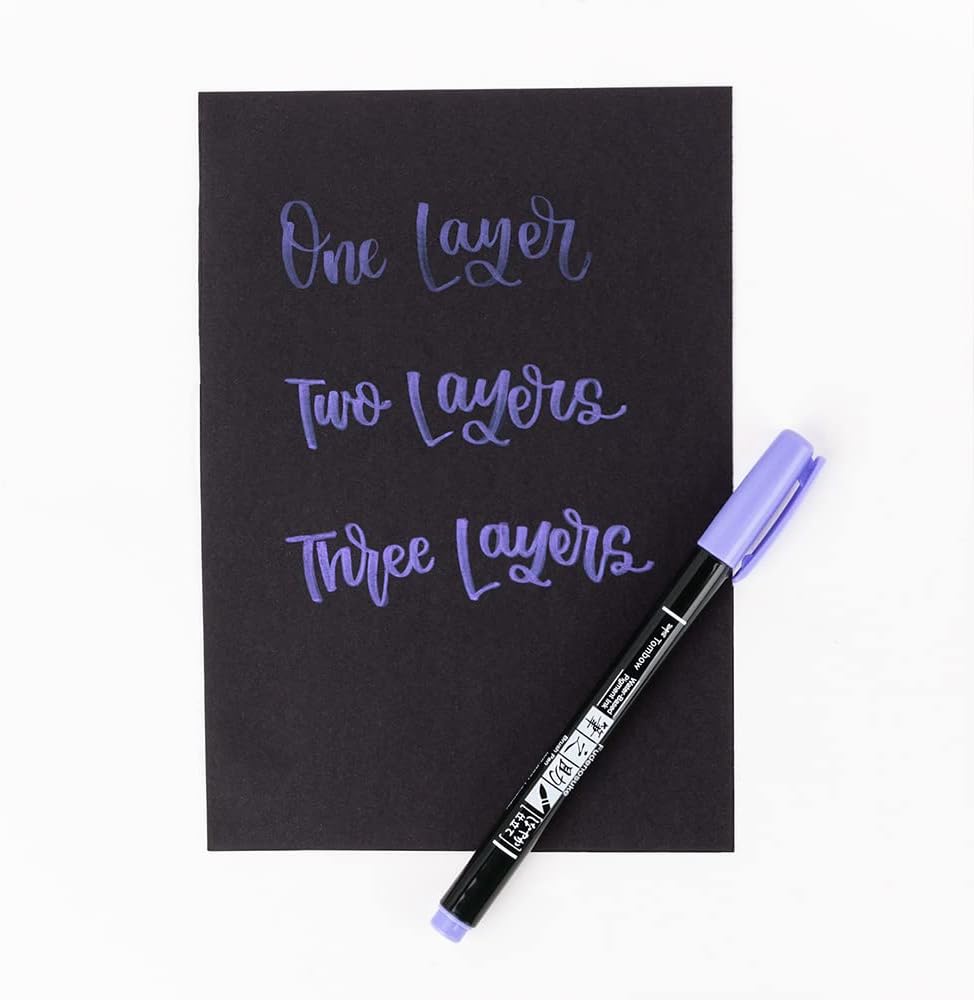 One Layer
Two Layers
Three Layers
Tombow
Water-Based
Pigment Ink
筆之助
Fudenosuke
Brush Pen
[はなやか
仕立て]